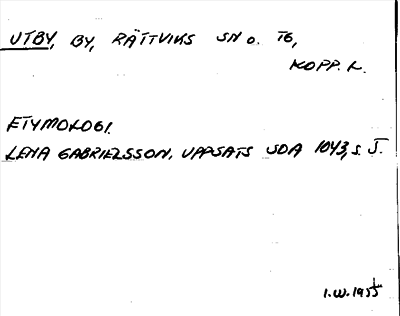 UTBY, BY, RÄTTVIKS SN o. TG,
KOPP. L.
ETYMOLOGI.
LENA GABRIELSSON, UPPSATS SOA 1043, s. 5.
I.W. 1955